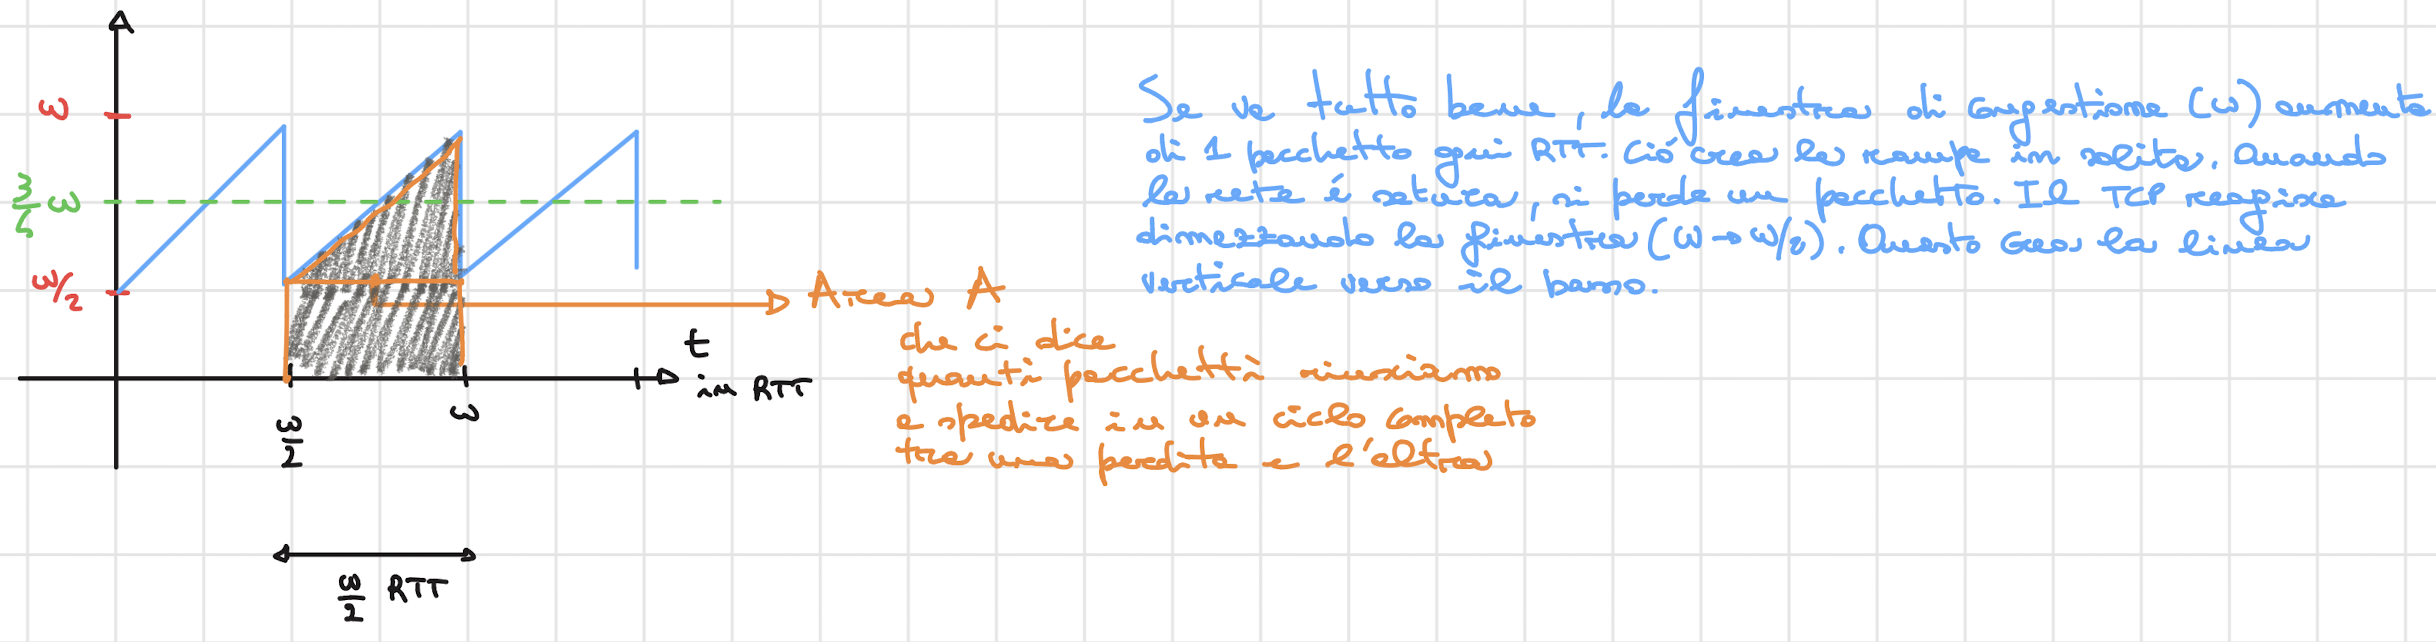 ω
3/4 ω
ω/2
Se va tutto bene, la finestra di congestione (ω) aumenta
di 1 pacchetto ogni RTT. Ció crea la rampa in salita. Quando
la rete é satura, si perde un pacchetto. Il TCP reagisce
dimezzando la finestra (W→W/2). Questo crea la linea
verticale verso il basso.
Area A
che ci dice
quanti pacchetti riusciamo
a spedire in un ciclo completo
tra una perdita e l'altra
t
in RTT
ω/2
ω
ω/2 RTT